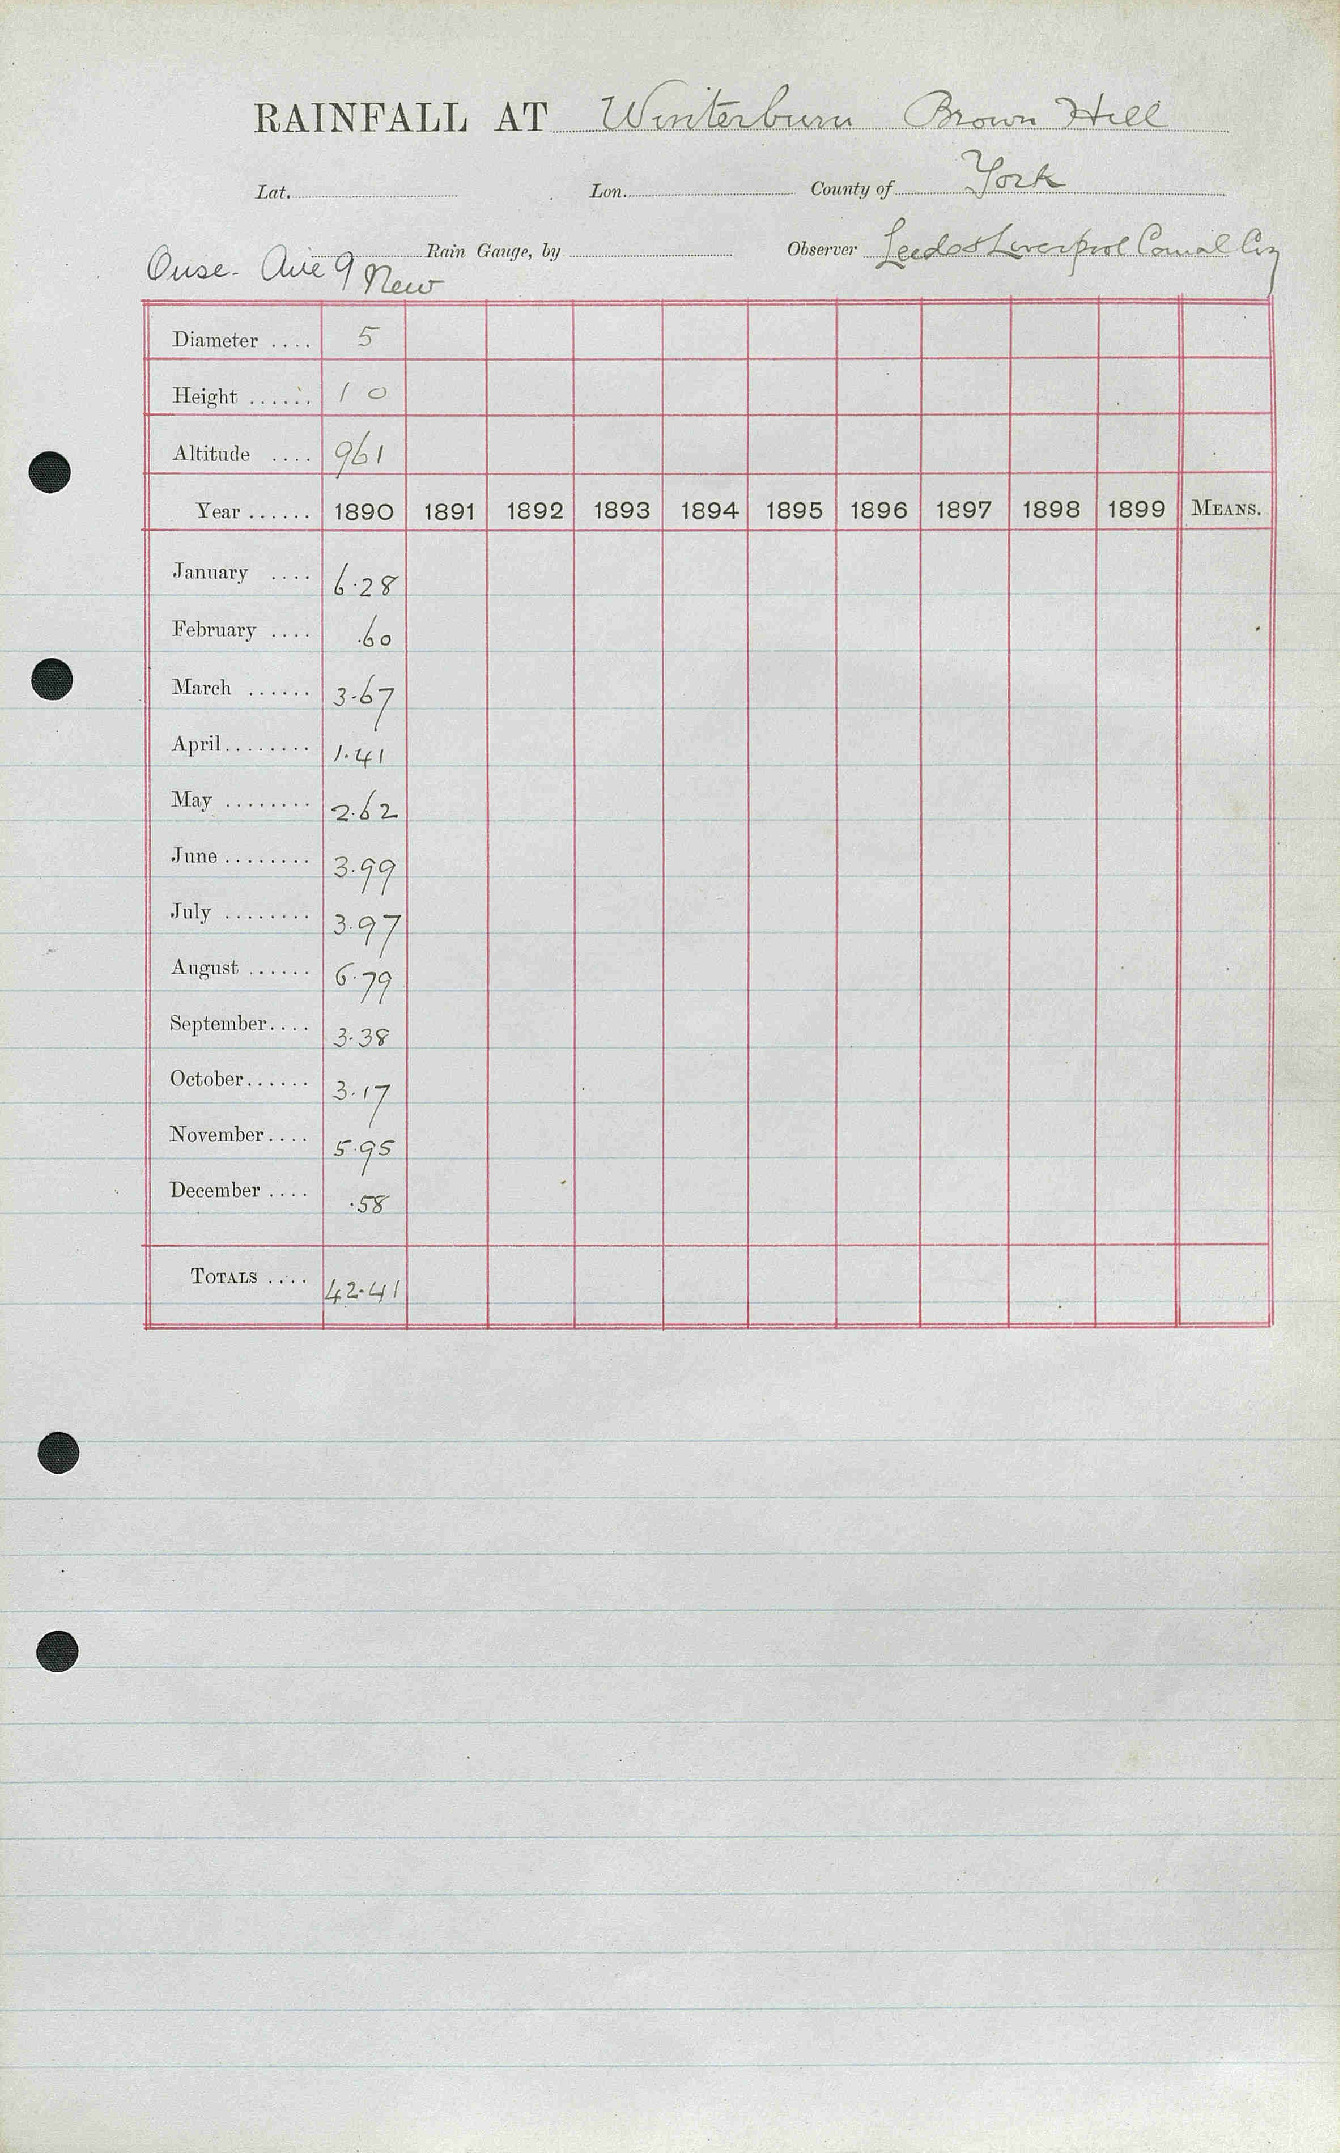 RAINFALL AT Winterburn Brown Hill
Lat. Lon. County of York
Rain Gauge, by Observer Leeds & Liverpool Canal Coy
Ouse. Aire 9 New
Diameter .... 5
Height ...... 1 0
Altitude .... 961
Year ...... 1890 1891 1892 1893 1894 1895 1896 1897 1898 1899 MEANS.
January .... 6.28
February .... .60
March ...... 3.67
April ........ 1.41
May ........ 2.62
June ........ 3.99
July ........ 3.97
August ...... 6.79
September .... 3.38
October ...... 3.17
November .... 5.95
December .... .58
TOTALS .... 42.41